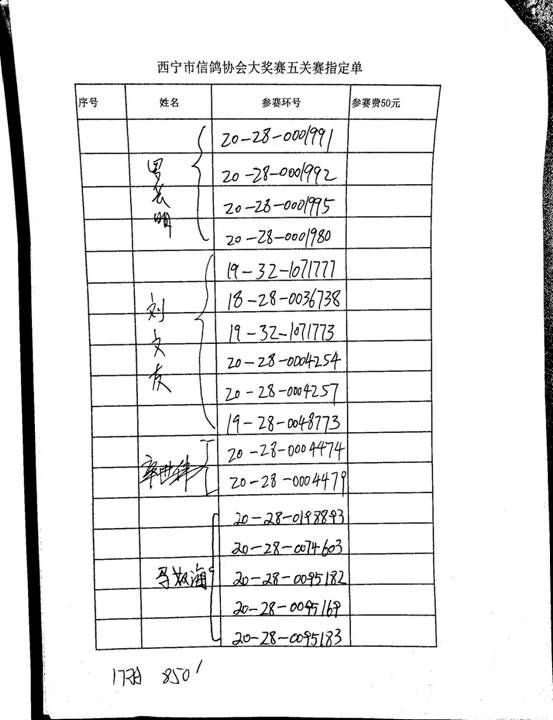 西宁市信鸽协会大奖赛五关赛指定单
序号 姓名 参赛环号 参赛费50元
20-28-0001991
20-28-0001992
20-28-0001995
20-28-0001980
19-32-1071777
刘文友
18-28-0036738
19-32-1071773
20-28-0004254
20-28-0004257
19-28-0048773
20-28-0004474
20-28-0004479
20-28-0198893
20-28-0074603
20-28-0095182
20-28-0095169
20-28-0095183
17羽 850